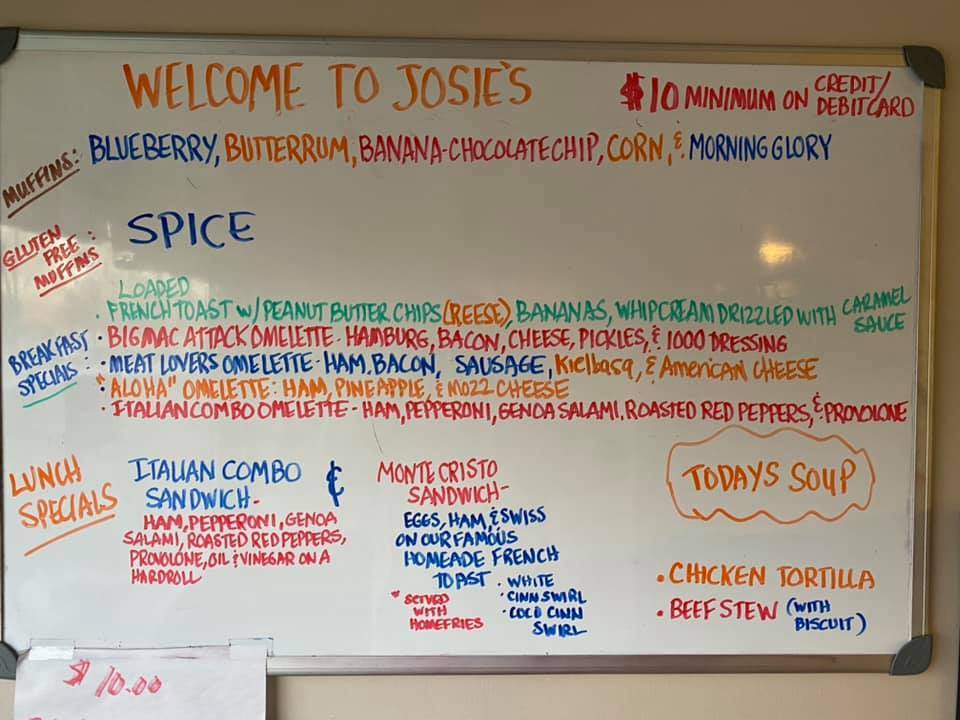 WELCOME TO JOSIE'S
$10 MINIMUM ON CREDIT/
DEBITCARD
MUFFINS: BLUEBERRY, BUTTERRUM, BANANA-CHOCOLATECHIP, CORN, & MORNING GLORY
GLUTEN FREE MUFFINS: SPICE
BREAKFAST SPECIALS:
LOADED
• FRENCH TOAST W/ PEANUT BUTTER CHIPS (REESE), BANANAS, WHIPCREAM DRIZZLED WITH CARAMEL SAUCE
• BIGMAC ATTACK OMELETTE - HAMBURG, BACON, CHEESE, PICKLES, & 1000 DRESSING
• MEAT LOVERS OMELETTE - HAM, BACON, SAUSAGE, Kielbasa, & American CHEESE
• "ALOHA" OMELETTE: HAM, PINEAPPLE, & MOZZ CHEESE
• ITALIAN COMBO OMELETTE - HAM, PEPPERONI, GENOA SALAMI, ROASTED RED PEPPERS, & PROVOLONE
LUNCH
SPECIALS
ITALIAN COMBO
SANDWICH -
HAM, PEPPERONI, GENOA
SALAMI, ROASTED RED PEPPERS,
PROVOLONE, OIL & VINEGAR ON A
HARDROLL
&
MONTE CRISTO
SANDWICH -
EGGS, HAM, & SWISS
ON OUR FAMOUS
HOMEADE FRENCH
TOAST • WHITE
• CINN SWIRL
• COCO CINN
SWIRL
* SERVED
WITH
HOMEFRIES
TODAYS SOUP
• CHICKEN TORTILLA
• BEEF STEW (WITH
BISCUIT)
$10.00